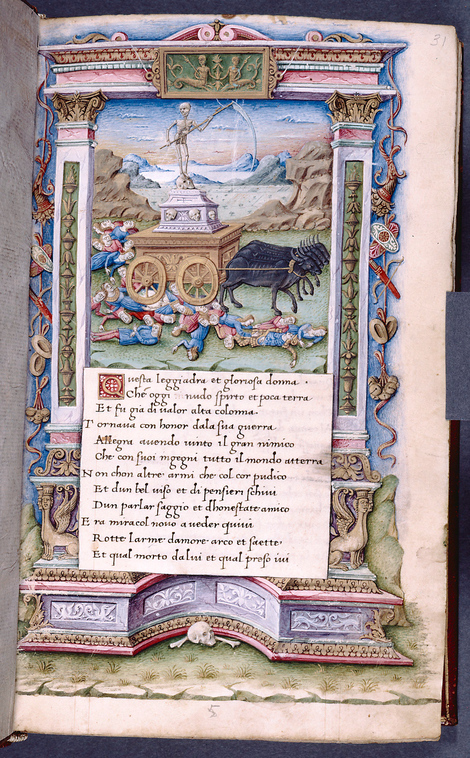 31
Questa leggiadra et gloriosa donna.
Che oggi nudo spirto et poca terra
Et fu gia di ualor alta colonna.
Tornaua con honor dala sua guerra
Allegra auendo uinto il gran nimico
Che con suoi ingegni tutto il mondo atterra
Non chon altre armi che col cor pudico
Et dun bel uiso et di pensieri schiui
Dun parlar saggio et dhonestate amico
Era miracol nouo a ueder quiui
Rotte larme damore arco et saette.
Et qual morto da lui et qual preso iui
5